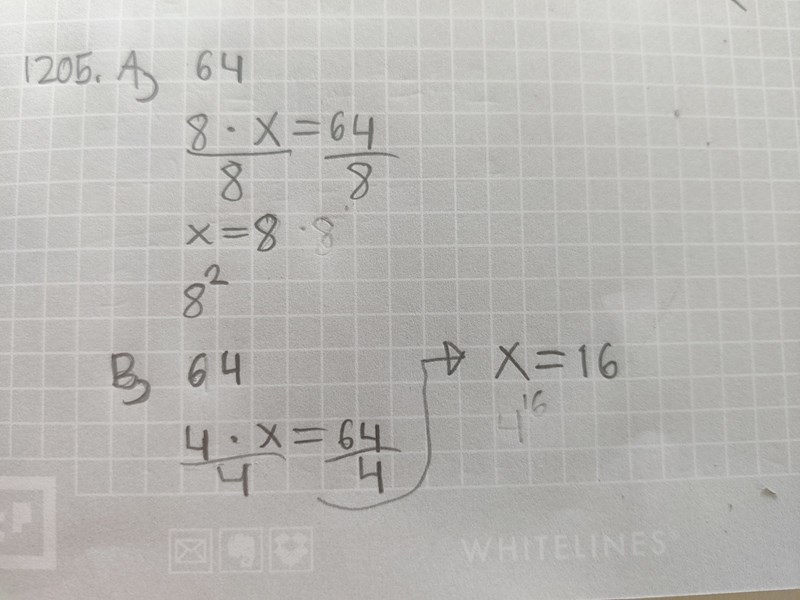 1205. A) 64
8 · X = 64
8 8
x = 8 · 8
8²
B) 64
4 · X = 64
4 4
X = 16
4¹⁶
WHITELINES®